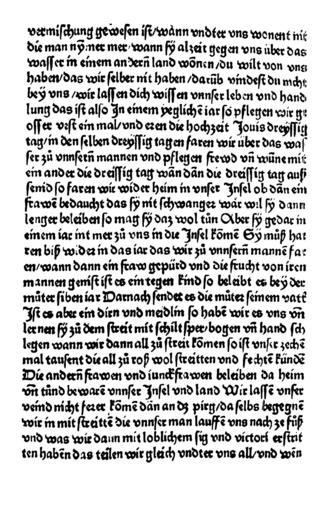 vermischung gewesen ist/wann vndter vns wonent nit
die man nymer mer wann sy alzeit gegen vns über das
wasser in einem andern land wonen/du wilt von vns
haben/das wir selber nit haben/darüb vindest du nicht
bey vns/wir lassen dich wissen vnnser leben vnd hand
lung das ist also In einem yeglichē iar so pflegen wir ge
osser vest ein mal/vnd eren die hochzeit Jouis dreyssig
tag/in den selben dreyssig tagen faren wir über das was
ser zů vnnsern mannen vnd pflegen frewd vn̄ wūne mit
ein ander die dreissig tag wan dān die dreissig tag auß
seind so faren wir wider heim in vnser Insel ob dān ein
frawē bedaucht das sy nit schwanger wär wil sy dann
lenger beleiben so mag sy daz wol tůn Aber sy gedar in
einem iar int mer zů vns in die Insel kōmē Sy můß har
ren biß wider in das iar das wir zů vnnsern mannē far
en/wann dann ein fraw gepürd vnd die frucht von iren
mannen genist ist es ein tegen kind so beleibt es bey der
můter siben iar Darnach sendet es die můter seinem vatt̄
Ist es aber ein dirn vnd meidlin so habē wir es vns vn̄
lernen sy zů dem streit mit schilt sper/bogen vn̄ hand sch
legen wann wir dann all zů streit kōmen so ist vnser zechē
mal tausent die all zů roß wol streitten vnd fechtē kündē
Die andern frawen vnd iunckfrawen beleiben da heim
vn̄ tůnd bewarē vnnser Insel vnd land Wir lassē vnser
veind nicht ferer kōmē dān an dz pirg/da selbs begegnē
wir in mit streittē die vnnser man lauffē vns nach ze fůß
vnd was wir dann mit loblichem sig vnd victori erstrit
ten habēn das teilen wir gleich vndter vns all/vnd wen